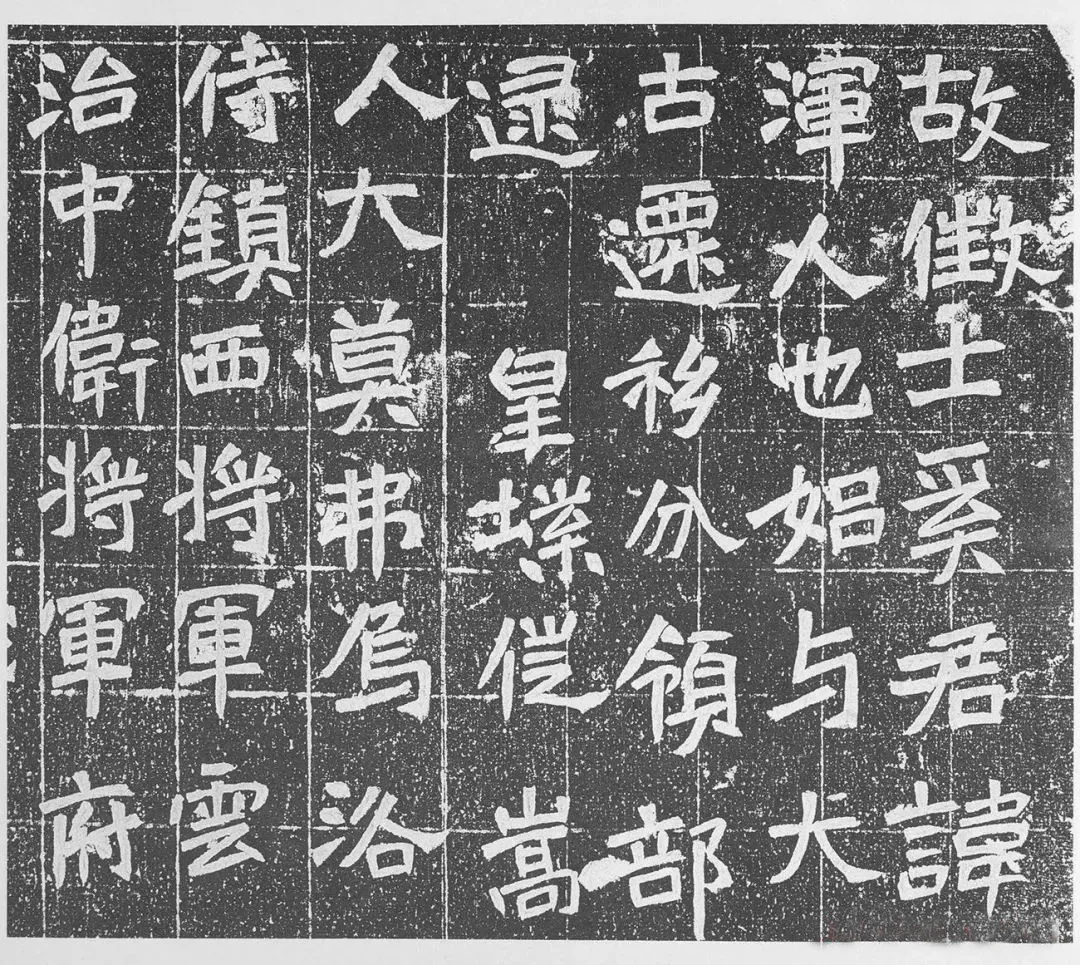 故徵士奚君諱
渾人也始与大
古遷移分領部
逮皇業徙嵩
人大莫弗烏洛
侍鎮西將軍雲
治中衛將軍府